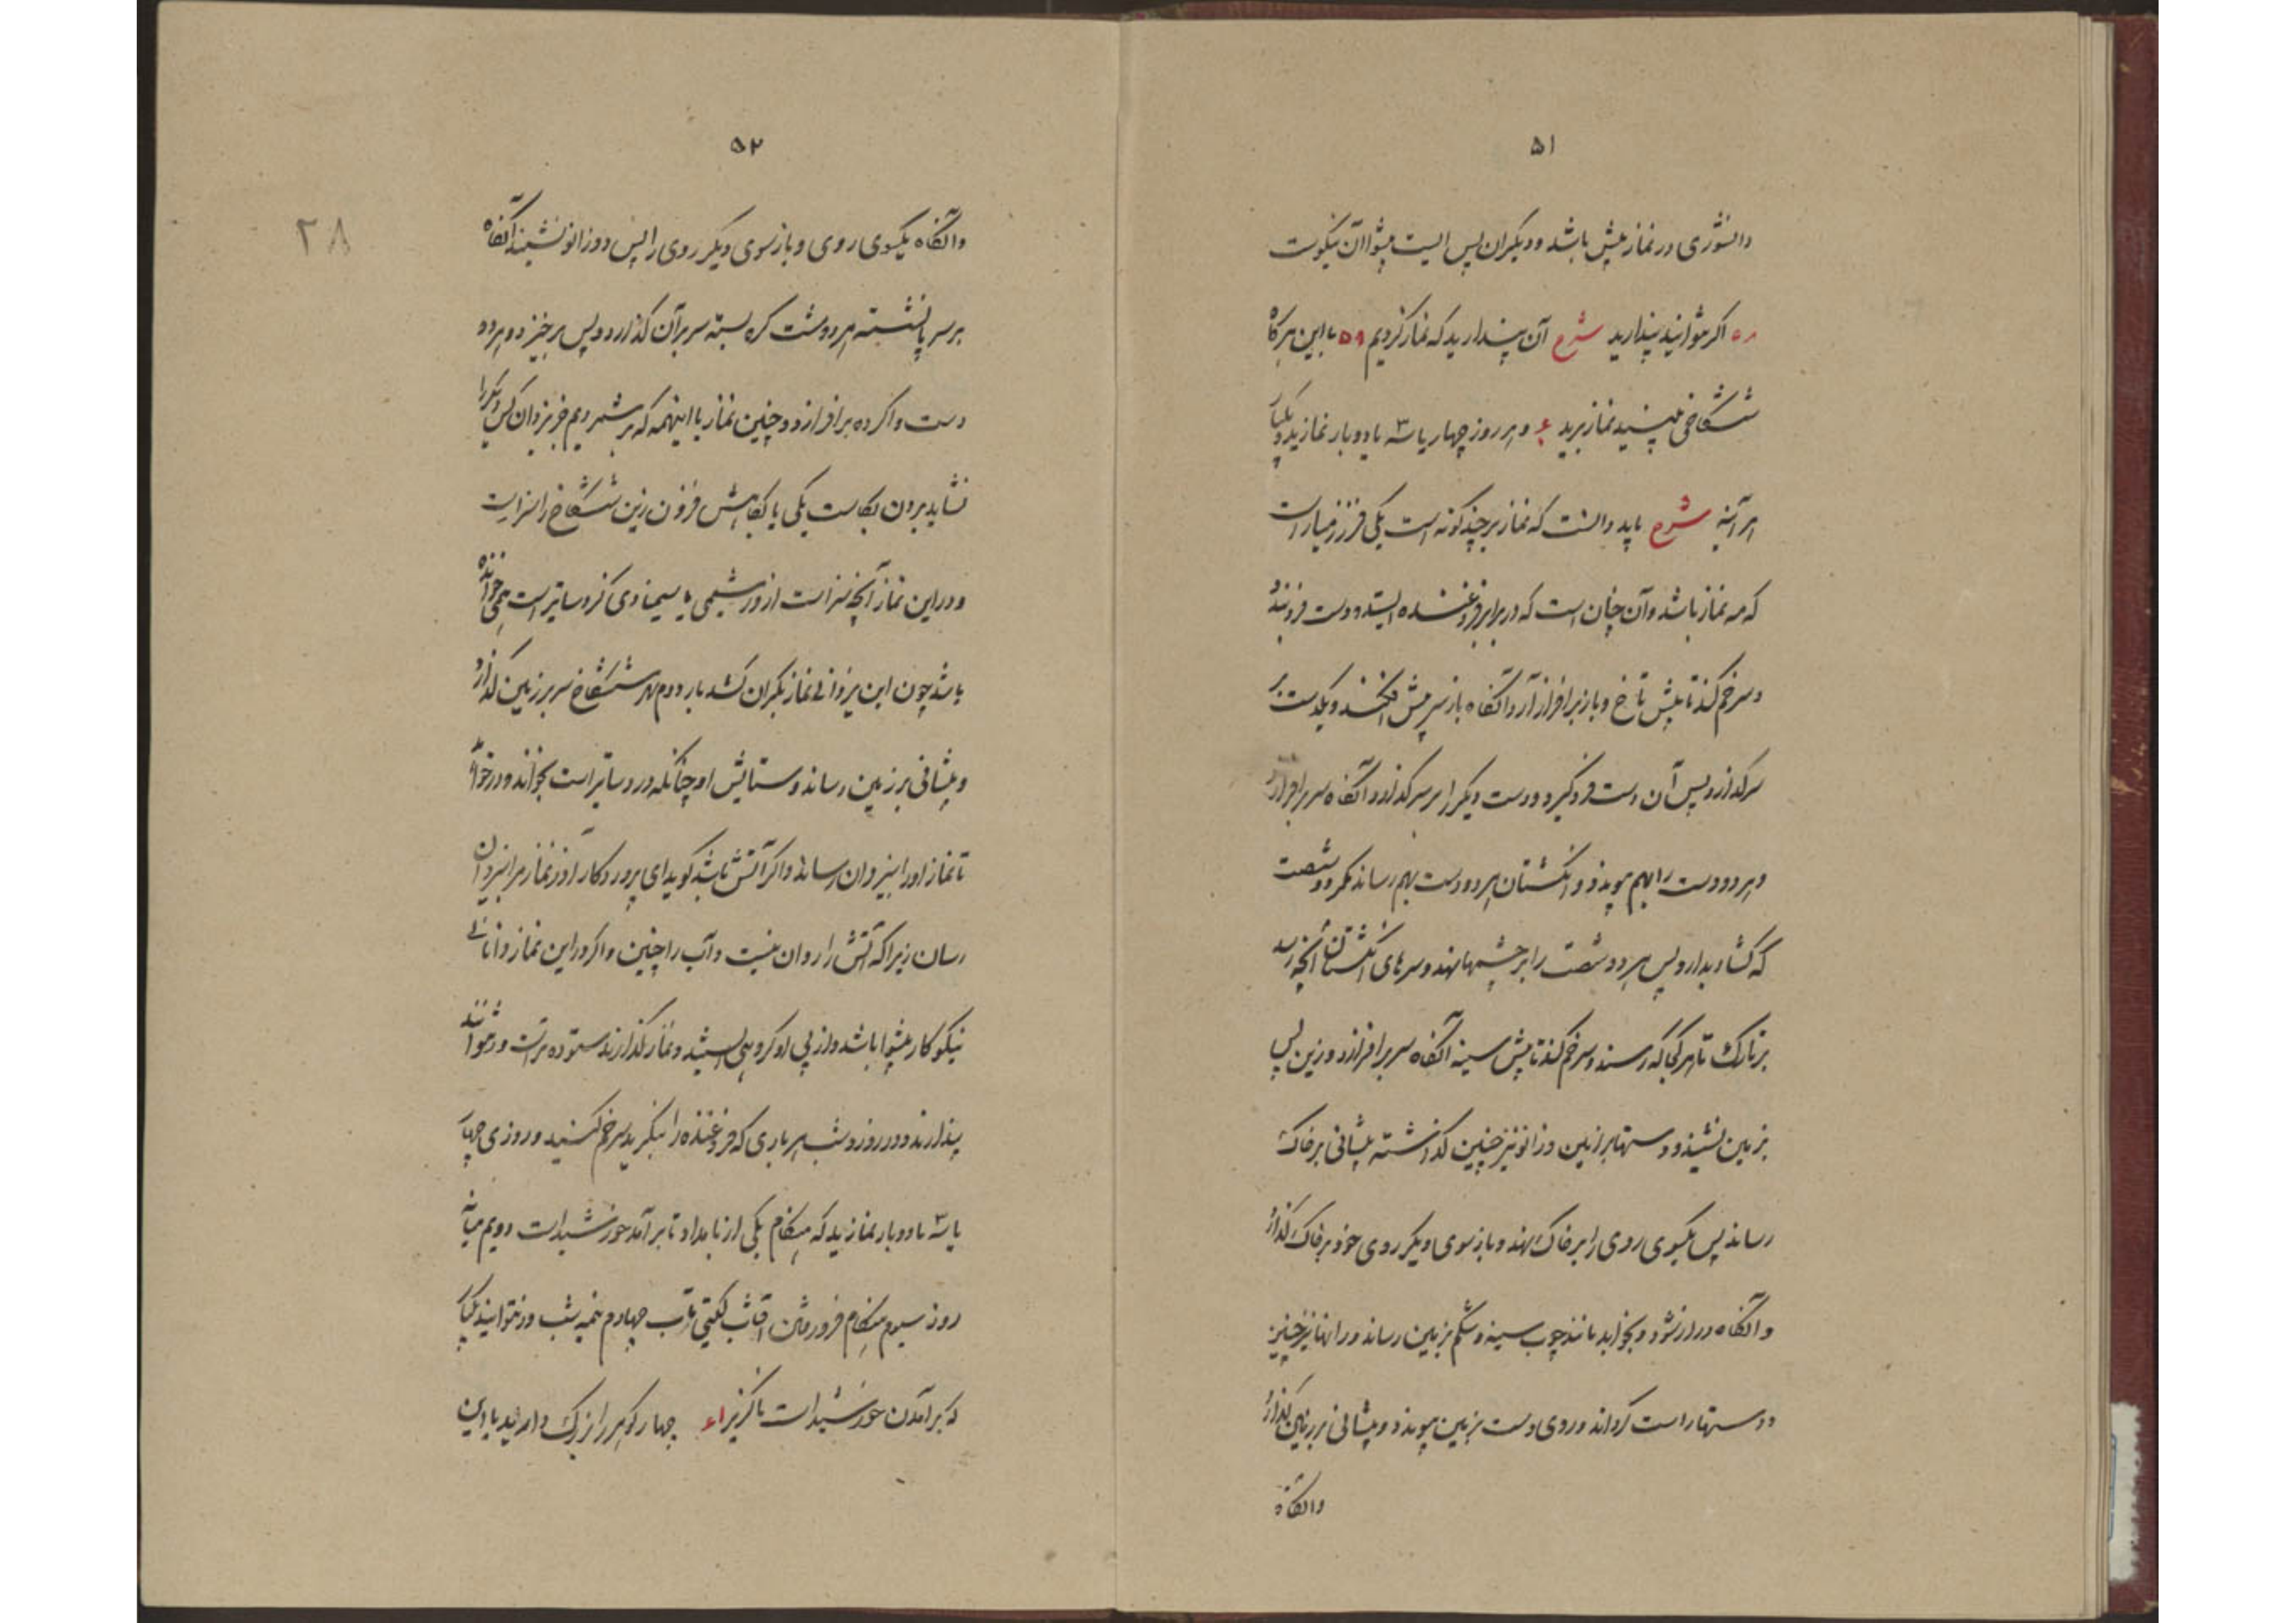 ۵۱
دانشوری در نماز پیش باشد و دیگران پس ایست پیشوا آن نیکوست
۵۸ اگر نتوانید پندارید شرح آن پندارید که نماز کردیم ۵۹ با این هرگاه
ششکاخی بینید نماز برید ۶۰ و هر روز چهار یا سه یا دو بار نماز برید و یکبار
هر آینه شرح باید دانست که نماز بر چند گونه است یکی فرزمیار است
که مه نماز باشد و آن چنان است که در برابر فروغنده ایستد و دست فرو بندد
و سر خم کند تا پیش ناخ و باز برافراز آرد و آنگاه باز سر پیش افکند و یکدست بر
سر گذارد پس آن دست فرو گیرد و دست دیگر را بر سر گذارد و آنگاه سر برافرازد
و هر دو دست را بهم پیوندد و انگشتان هر دو دست بهم رساند مگر دو شصت
که گشاد بدارد پس هر دو شصت را بر چشمها نهد و سرهای انگشتان آنچه رسد
بر تارک تا هر کجا که رسند و سر خم کند تا پیش سینه آنگاه سر برافرازد و زین پس
بزمین نشیند و دستها بر زمین و زانو نیز چنین گذاشته پیشانی بر خاک
رساند پس یکسوی روی را بر خاک نهد و باز سوی دیگر روی خود بر خاک گذارد
و آنگاه دراز شود و بخوابد مانند چوب سینه و شکم بزمین رساند و رانها نیز چنین
و دستها راست گرداند و روی دست بزمین پیوندد و پیشانی بر زمین گذارد
و آنگاه
۵۲
۲۸
و آنگاه یکسوی روی و باز سوی دیگر روی را پس دو زانو نشیند آنگاه
بر سر پا نشسته هر دو مشت گره بسته سر بر آن گذارد و پس برخیزد و هر دو
دست وا کرده برافرازد و چنین نماز با اینهمه که بر شمردیم جز یزدان کس دیگر را
نشاید بردن بکاست یکی یا بکاهش فزون زین ششکاخ را سزاست
و در این نماز آنچه سزاست از ورشیمی یا سیمنادی کز دساتیر است همی خوانده
باشد چون این یزدانی نماز بکران کشد بار دوم بهر ششکاخ سر بر زمین گذارد
و پیشانی بر زمین رساند و ستایش او چنانکه در دساتیر است بخواند و درخواهد
تا نماز او را بیزدان رساند و اگر آتش باشد گوید ای پروردگار آذر نماز مرا بیزدان
رسان زیرا که آتش را روان نیست و آب را چنین و اگر در این نماز دانائی
نیکوکار پیشوا باشد و از پی او گروهی ایستند و نماز گذارند ستوده تر است و نتوانند
پندارند و در روز و شب هر باری که فروغنده را بنگرید سر خم کنید و روزی چهار
یا سه یا دو بار نماز برید که هنگام یکی از بامداد تا برآمد خورشید است دویم میانه
روز سیوم هنگام فرو رفتن آفتاب گیتی تاب چهارم نیمه شب ور نتوانید یکبار
که برآمدن خورشید است ناگزیر ۶۱ چهار گوهر را بزرگ دارید با این